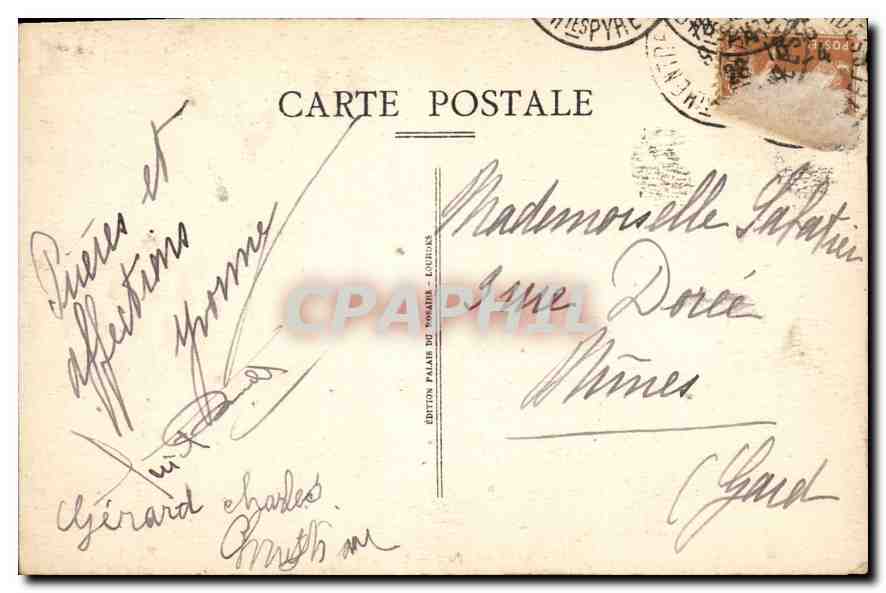 HTES PYRE
POSTES
CARTE POSTALE
Prières et
affections
Yvonne
Gérard Charles
ÉDITION PALAIS DU ROSAIRE - LOURDES
Mademoiselle Sabatier
3 rue Dorée
Nîmes
(Gard
CPAPHIL